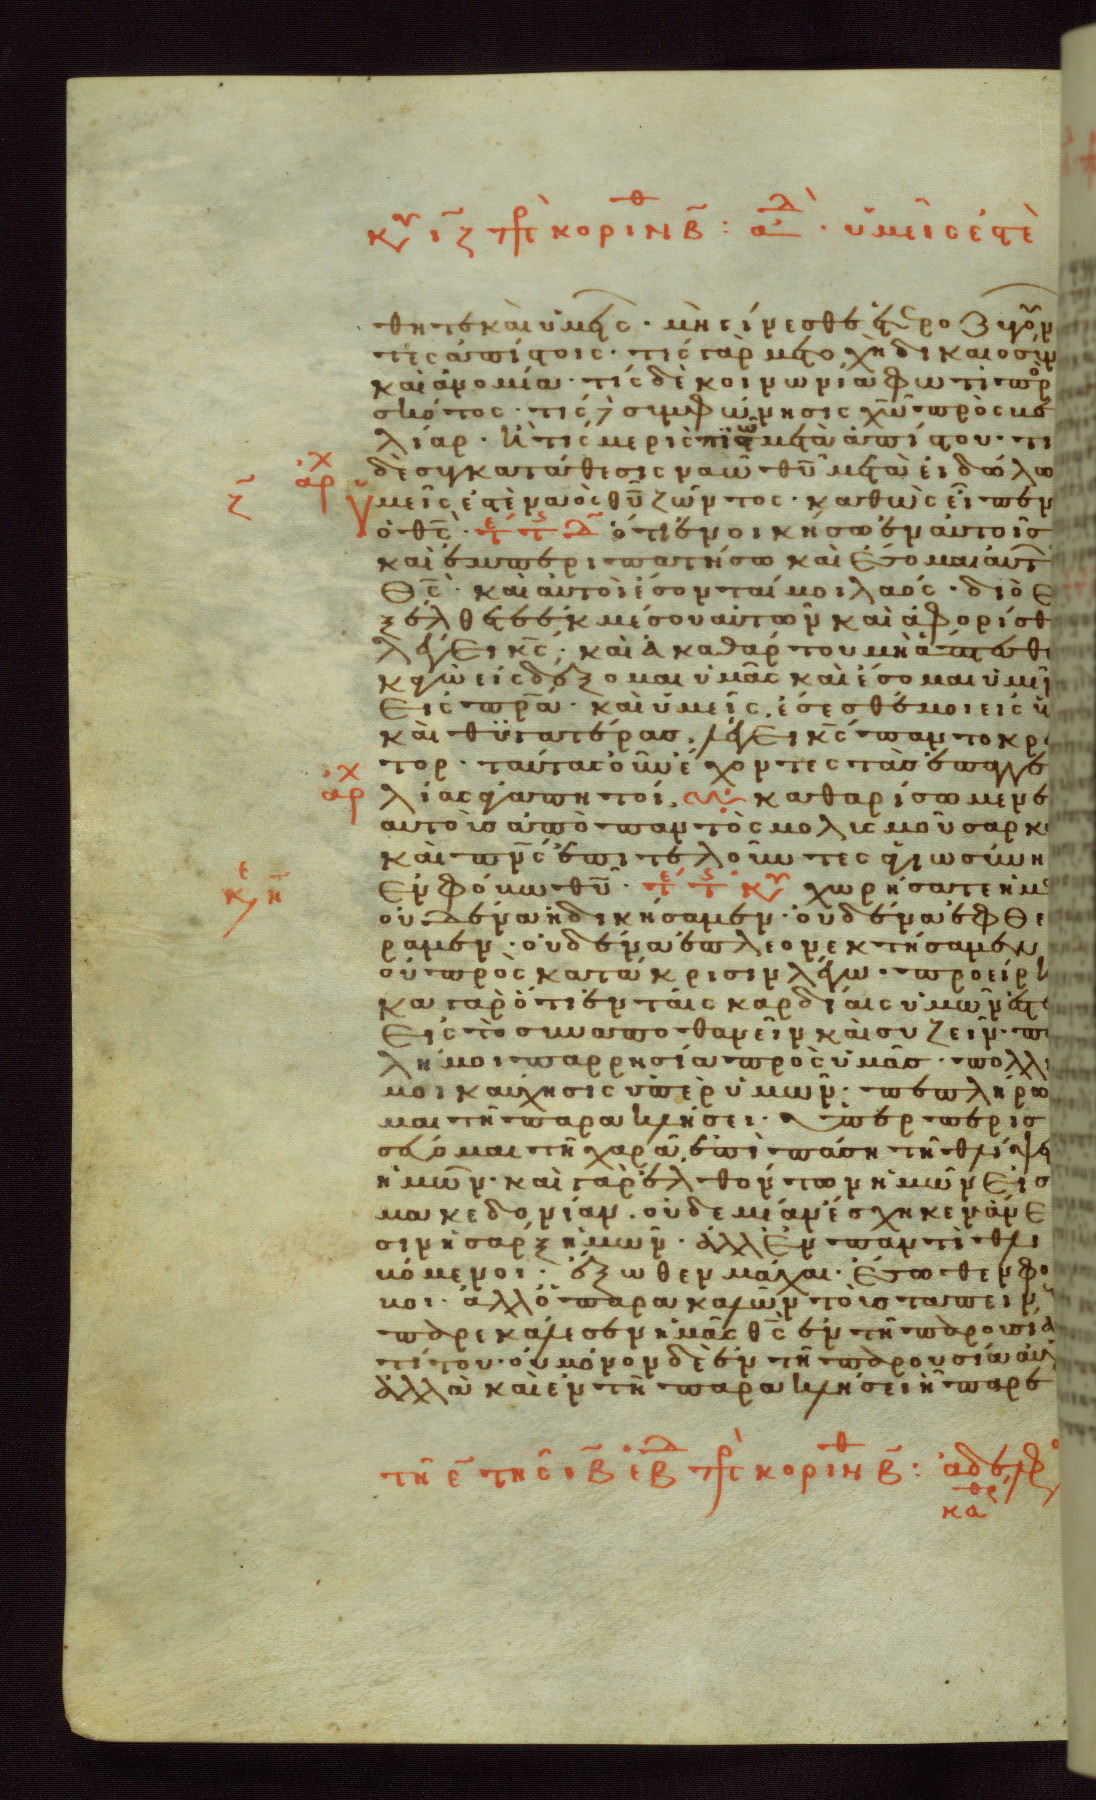 κυ ιζ πρ κοριν β : αδελ · ὑμεῖς ἐστὲ
θητε καὶ ὑμεῖς · μὴ γίνεσθε ἑτεροζυγοῦν
τες ἀπίστοις · τίς γὰρ μετοχὴ δικαιοσύν
καὶ ἀνομία · τίς δὲ κοινωνία φωτὶ πρ
σκότος · τίς δὲ συμφώνησις χῶ πρὸς βε
λίαρ · ἢ τίς μερὶς πιστῶ μετὰ ἀπίστου · τι
δὲ συγκατάθεσις ναῶ θῦ μετὰ εἰδώλω
ζ ἀρχ ὑμεῖς ἐστὲ ναὸς θῦ ζῶντος · καθὼς εἶπεν
ὁ θς · ὅτι ἐνοικήσω ἐν αὐτοῖς
καὶ ἐμπεριπατήσω καὶ ἔσομαι αὐτ
θς · καὶ αὐτοὶ ἔσονταί μοι λαός · διὸ ἐ
ξέλθετε ἐκ μέσου αὐτῶν καὶ ἀφορίσθ
λέγει κς · καὶ ἀκαθάρτου μὴ ἅπτεσθε
κἀγὼ εἰσδέξομαι ὑμᾶς καὶ ἔσομαι ὑμῖ
εἰς πρα · καὶ ὑμεῖς ἔσεσθέ μοι εἰς υ
καὶ θυγατέρας · λέγει κς παντοκρ
τορ · ταύτας οὖν ἔχοντες τὰς ἐπαγγε
ἀρχ λίας ἀγαπητοί · καθαρίσωμεν ἑ
αυτοὺς ἀπὸ παντὸς μολισμοῦ σαρκ
καὶ πνς ἐπιτελοῦντες ἁγιωσύνη
κε η ἐν φόβω θῦ · κυ χωρήσατε ἡμ
οὐδένα ἠδικήσαμεν · οὐδένα ἐφθεί
ραμεν · οὐδένα ἐπλεονεκτήσαμεν
οὐ πρὸς κατάκρισιν λέγω · προείρη
κα γὰρ ὅτι ἐν ταῖς καρδίαις ὑμῶν ἐστε
εἰς τὸ συναποθανεῖν καὶ συζεῖν · πο
λή μοι παρρησία πρὸς ὑμᾶς · πολλή
μοι καύχησις ὑπὲρ ὑμῶν · πεπλήρω
μαι τῆ παρακλήσει · ὑπερπερισ
σεύομαι τῆ χαρᾶ ἐπὶ πάση τῆ θλίψε
ἡμῶν · καὶ γὰρ ἐλθόντων ἡμῶν εἰς
μακεδονίαν · οὐδεμίαν ἔσχηκεν ἄνε
σιν ἡ σὰρξ ἡμῶν · ἀλλ' ἐν παντὶ θλι
βόμενοι · ἔξωθεν μάχαι · ἔσωθεν φό
βοι · ἀλλ' ὁ παρακαλῶν τοὺς ταπειν
παρεκάλεσεν ἡμᾶς θς ἐν τῆ παρουσία
τίτου · οὐ μόνον δὲ ἐν τῆ παρουσία αὐ
ἀλλὰ καὶ ἐν τῆ παρακλήσει ἧ παρε
τῆ ε τῆς ιβ εβ πρ κοριν β : ἀδελφ
καθ